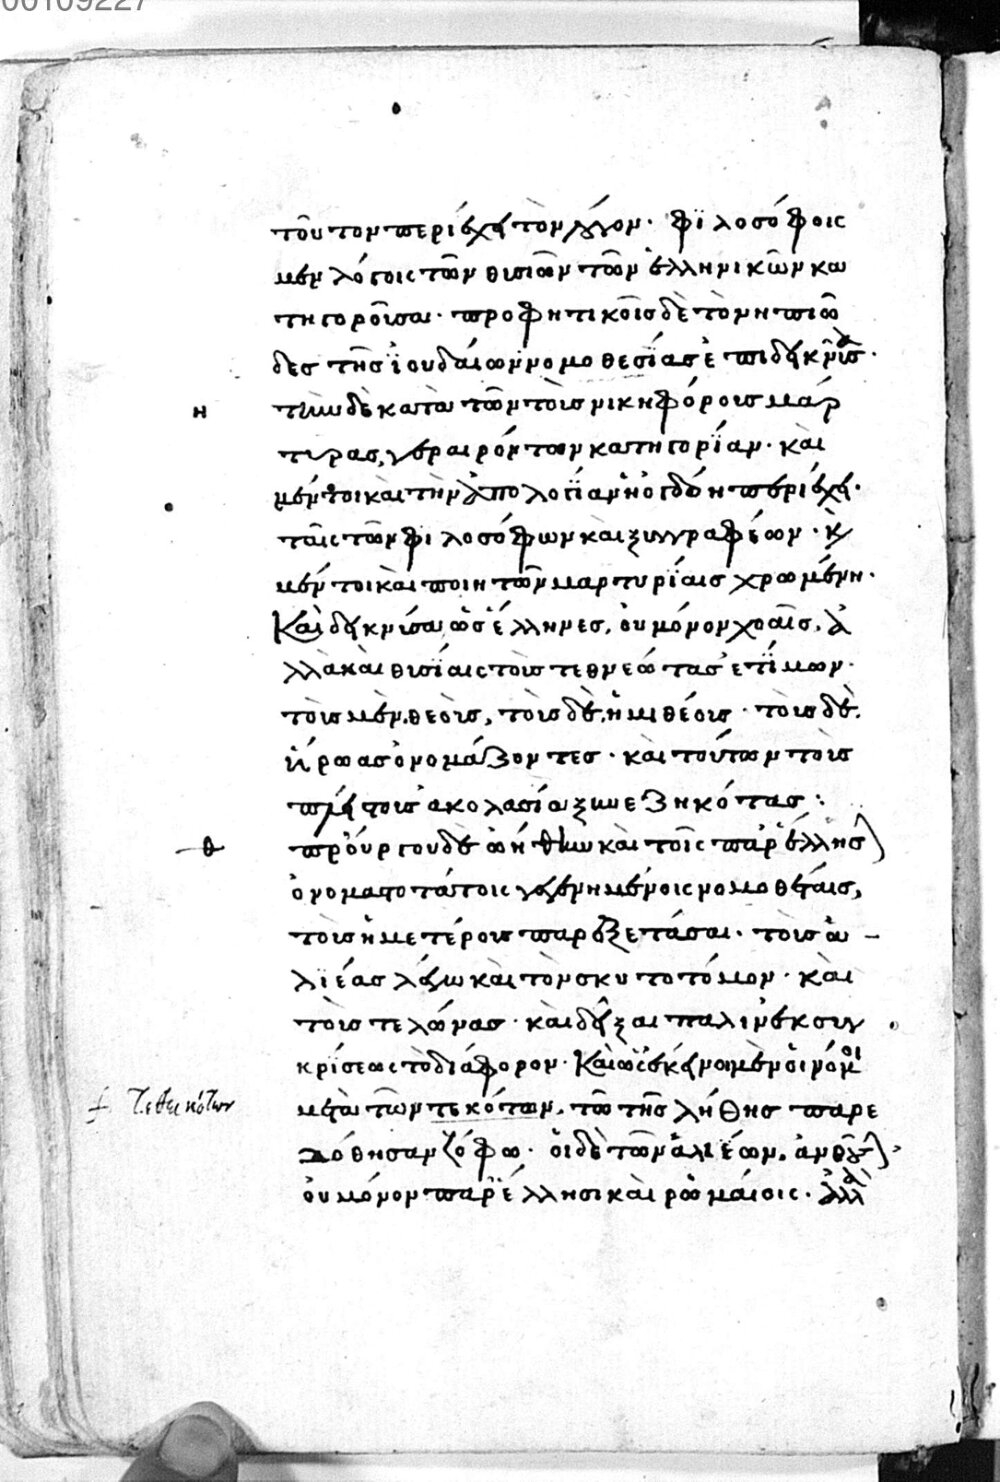 00109227
τοῦτον περιέχει τὸν λόγον· φϊλοσόφοις
μὲν λόγοις τῶν θισιῶν τῶν ἑλληνικῶν κα
τηγοροῦσαι· προφητικοῖς δὲ τὸ νηπιῶ
δες τῆς ἰουδαίων νομοθεσίας ἐπιδεικνῦσ·
η τὴν δὲ κατὰ τῶν τοὺς νικηφόρους μάρ
τυρας, γεραιρόντων κατηγορίαν· καὶ
μέντοι καὶ τὴν ἀπολογίαν ἡ ὀγδόη περιέχει·
ταῖς τῶν φιλοσόφων καὶ ξυγγραφέων· κ
μέντοι καὶ ποιητῶν μαρτυρίαις χρωμένη·
Καὶ δεικνῦσα ὡς ἕλληνες, οὐ μόνον χοαῖς, ἀ
λλὰ καὶ θισίαις τοὺς τεθνεῶτας ἐτίμων·
τοὺς μὲν, θεοὺς, τοὺς δὲ, ἡμιθέους· τοὺς δὲ,
ἥρωας ὀνομάζοντες· καὶ τούτων τοὺς
πλείστους ἀκολασία ξυνεζηκότας:
θ προὔργου δὲ ὠήθην καὶ τοῖς παρ' ἕλλησ
ὀνομαστοτάτοις γεγενημένοις νομοθέταις,
τοὺς ἡμετέρους παρεξετάσαι· τοὺς ἁ
λϊέας λέγω καὶ τὸν σκυτοτόμον· καὶ
τοὺς τελώνας· καὶ δεῖξαι πάλιν ἐκ συγ
κρίσεως τὸ διάφορον· Καὶ ὡς ἐκείνοι μὲν οἱ νόμοι
μετὰ τῶν τεκότων, τῶ τῆς λήθης παρε
+ τεθεικότων
δόθησαν ζόφω· οἱ δὲ τῶν ἁλιέων, ἀνθοῦ
οὐ μόνον παρ' ἕλλησι καὶ ρωμαίοις· ἀλλὰ